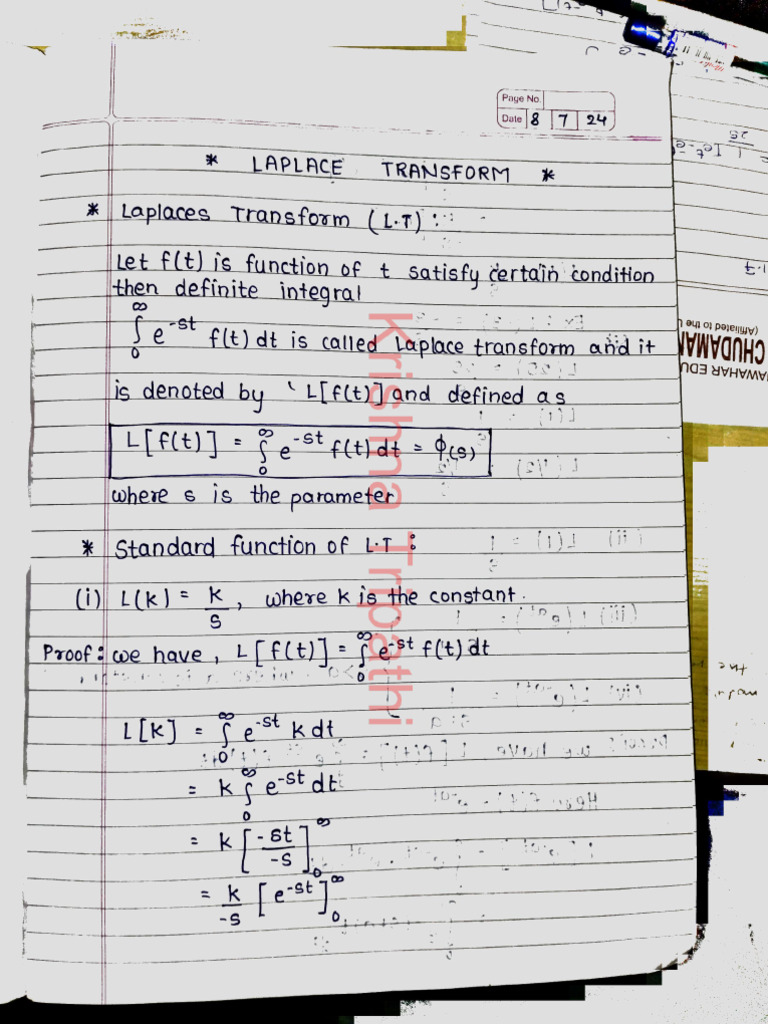 Page No.
Date 8 7 24
* LAPLACE TRANSFORM *
* Laplaces Transform (L.T) :
Let f(t) is function of t satisfy certain condition
then definite integral
∫₀^∞ e^-st f(t) dt is called Laplace transform and it
is denoted by ' L[f(t)] and defined as
L[f(t)] = ∫₀^∞ e^-st f(t) dt = φ(s)
where s is the parameter
* Standard function of L.T :
(i) L(k) = k/s , where k is the constant.
Proof : we have , L[f(t)] = ∫₀^∞ e^-st f(t) dt
L[k] = ∫₀^∞ e^-st k dt
= k ∫₀^∞ e^-st dt
= k [-st/-s]₀^∞
= k/-s [e^-st]₀^∞
Krishna Tripathi
JAWAHAR EDU
CHUDAMAN
(Affiliated to the U